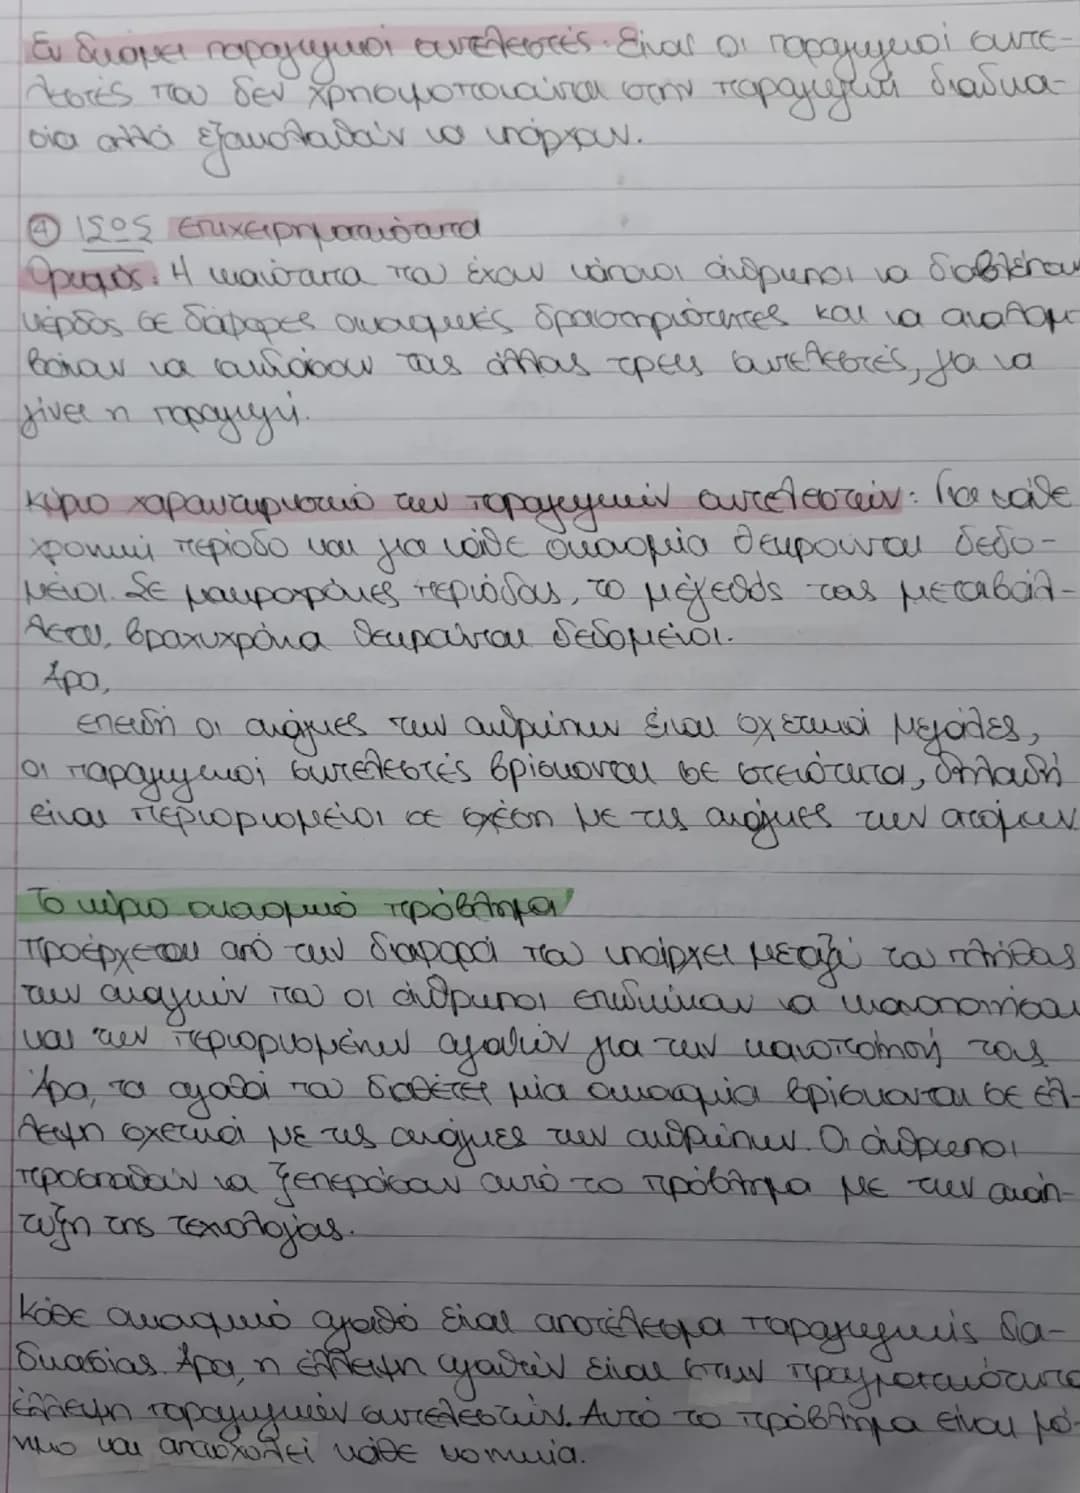 Εν δυνάμει παραγωγικοί συντελεστές: Είναι οι παραγωγικοί συντε-
λεστές που δεν χρησιμοποιούνται στην παραγωγική διαδικα-
σία αλλά εξακολουθούν να υπάρχουν.
④ 1505 Επιχειρηματικότητα
Ορισμός: Η ικανότητα που έχουν κάποιοι άνθρωποι να διαβλέπουν
κέρδος σε διάφορες οικονομικές δραστηριότητες και να αναλαμ-
βάνουν να συνδυάσουν τους άλλους τρεις συντελεστές, για να
γίνει η παραγωγή.
Κύριο χαρακτηριστικό των παραγωγικών συντελεστών: Για κάθε
χρονική περίοδο και για κάθε οικονομία θεωρούνται δεδο-
μένοι. Σε μακροχρόνιες περιόδους, το μέγεθός τους μεταβάλ-
λεται, βραχυχρόνια θεωρούνται δεδομένοι.
Άρα,
επειδή οι ανάγκες των ανθρώπων είναι σχετικά μεγάλες,
οι παραγωγικοί συντελεστές βρίσκονται σε στενότητα, δηλαδή
είναι περιορισμένοι σε σχέση με τις ανάγκες των ατόμων
Το κύριο οικονομικό πρόβλημα
Προέρχεται από την διαφορά που υπάρχει μεταξύ του πλήθους
των αναγκών που οι άνθρωποι επιδιώκουν να ικανοποιήσουν
και των περιορισμένων αγαθών για την ικανοποίησή τους
Άρα, τα αγαθά που διαθέτει μία οικονομία βρίσκονται σε έλ-
λειψη σχετικά με τις ανάγκες των ανθρώπων. Οι άνθρωποι
προσπαθούν να ξεπεράσουν αυτό το πρόβλημα με την ανάπ-
τυξη της τεχνολογίας.
Κάθε οικονομικό αγαθό είναι αποτέλεσμα παραγωγικής δια-
δικασίας. Άρα, η έλλειψη αγαθών είναι στην πραγματικότητα
έλλειψη παραγωγικών συντελεστών. Αυτό το πρόβλημα είναι μό-
νιμο και απασχολεί κάθε κοινωνία.